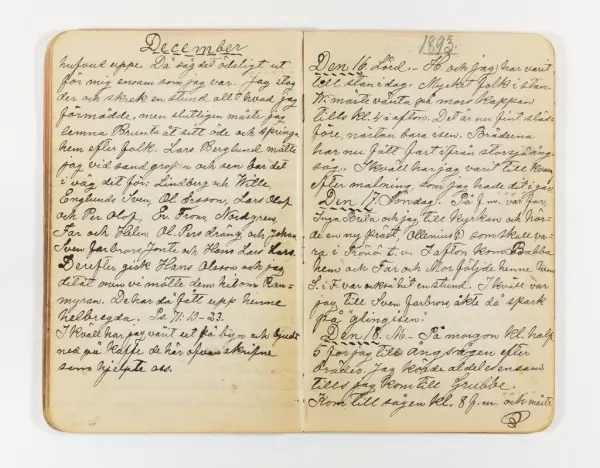 December
hufvud uppe. Då såg det ödeligt ut
för mig ensam som jag var. Jag stog
der och skrek en stund allt hvad jag
förmådde, men slutligen måtte jag
lemna Brunta åt sitt öde och springa
hem efter folk. Lars Berglund mötte
jag vid sandgropen och sen bar det
i väg det för: Lindberg och Wille,
Englunds Sven, Ol. Ersson, Lars Olof
och Per Olof, Er. From, Nordgren,
Far och Helin Ol. Pers dräng, och Johan
Sven farbrors Jonte och Hans Lars Lars.
Derefter gick Hans Olsson och jag
ditåt men vi mötte dem hitom Ran=
myran. De har då fått upp henne
helbregda. Ps. 71: 10-23.
I kväll har jag varit ut på byn och bjudit
ned på kaffe de här ofvan skrifne
som hjelpte oss.
1893.
Den 16. Lörd. - H. och jag har varit
till stan i dag. Mycket folk i stan.
Vi måtte vänta på mors kappan
tills kl. 4 i afton. Det är nu fint släd=
före, nästan bara isen. Bräderna
har nu fått fart ifrån storsjöäng=
såg. I kväll har jag varit till kvarn
efter malning, som jag hade dit i går
Den 17. Söndag. På f.m. var far,
Inga Brita och jag till kyrkan och hör=
de en ny präst, Ollenius som skall va=
ra i Trönö t.v. I afton kom Babba
hem och Far och Mor följde henne hem
S. i F. var också hit en stund. I kväll var
jag till Sven farbrors, åkte då spark
på "glingisen".
Den 18. M. - På morgon kl. half
5 for jag till ångsågen efter
bräder. Jag körde aldeles ensam
tills jag kom till Grubbe.
Kom till sågen kl. 8 f.m. och måtte